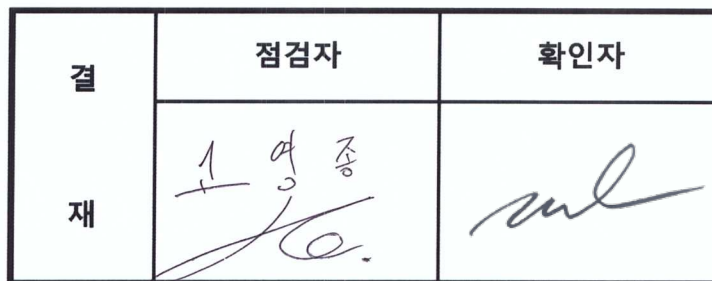 결재
점검자
확인자
고영종